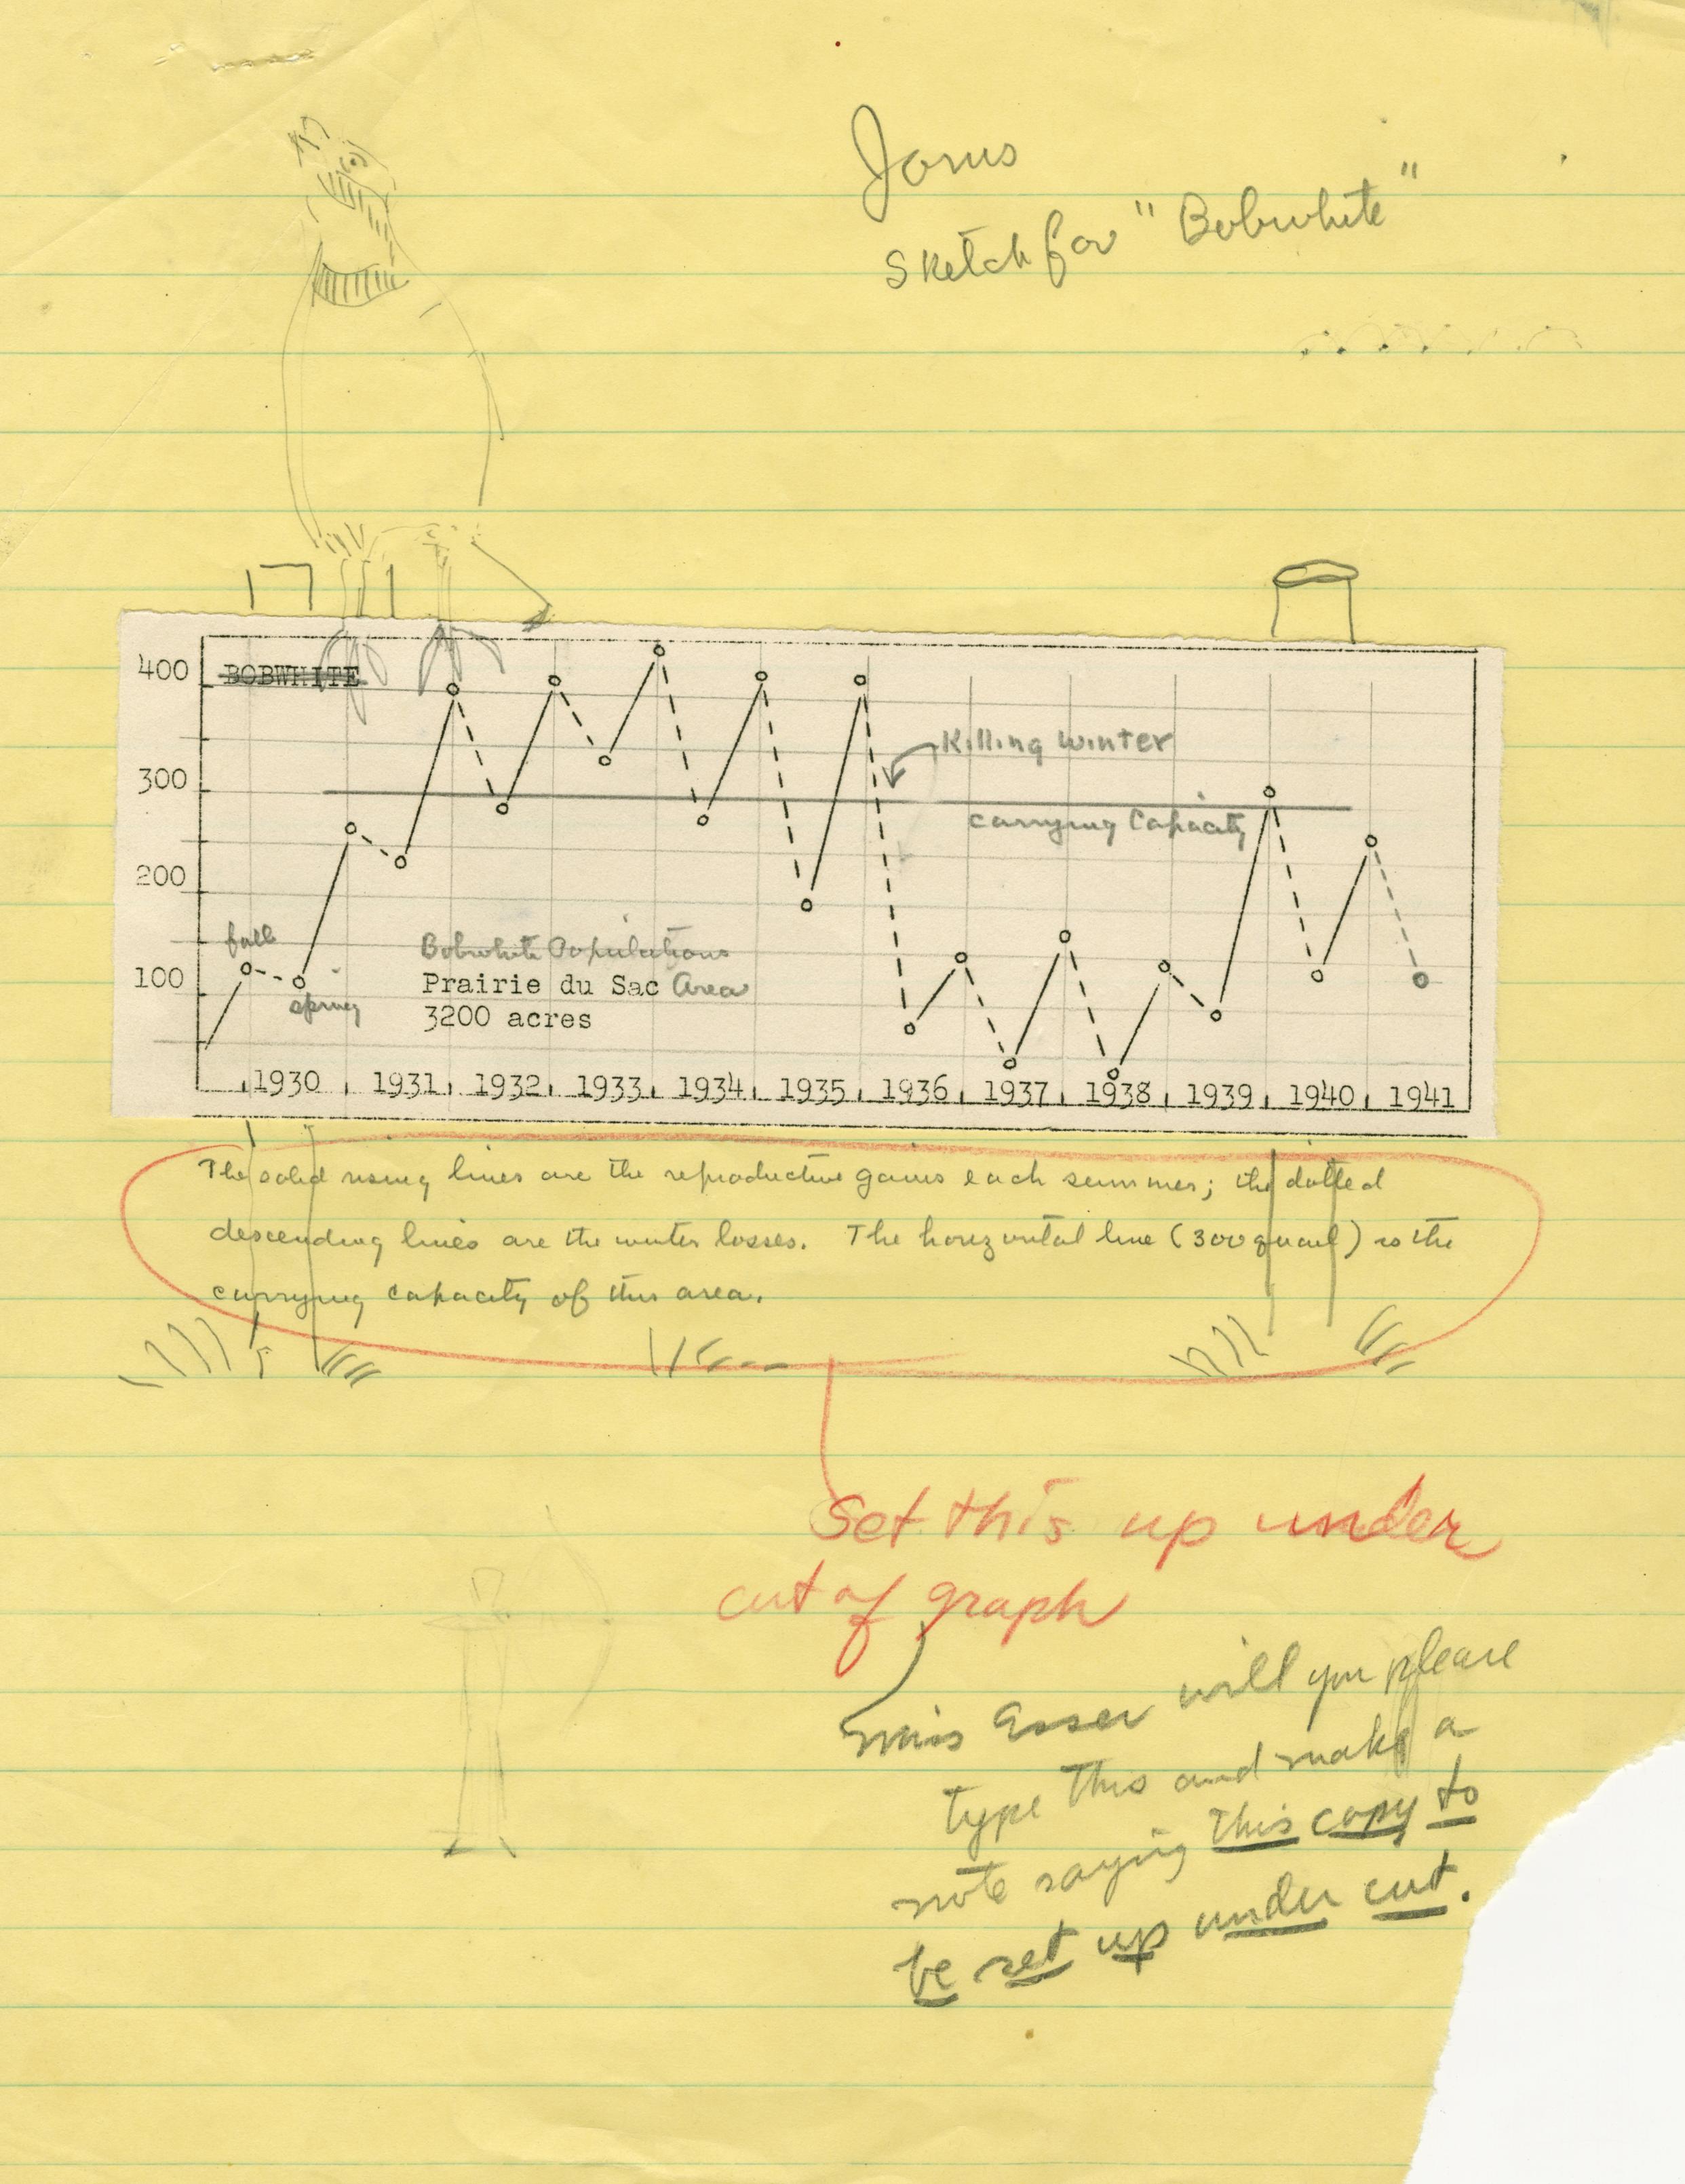 Jorns
Sketch for "Bobwhite"
400
BOBWHITE
Killing Winter
300
Carrying Capacity
200
fall
Bobwhite Populations
100
Prairie du Sac Area
spring
3200 acres
1930 1931 1932 1933 1934 1935 1936 1937 1938 1939 1940 1941
The solid rising lines are the reproductive gains each summer; the dotted
descending lines are the winter losses. The horizontal line (300 quail) is the
carrying capacity of this area.
Set this up under
cut of graph
Miss Esser will you please
type this and make a
note saying this copy to
be set up under cut.